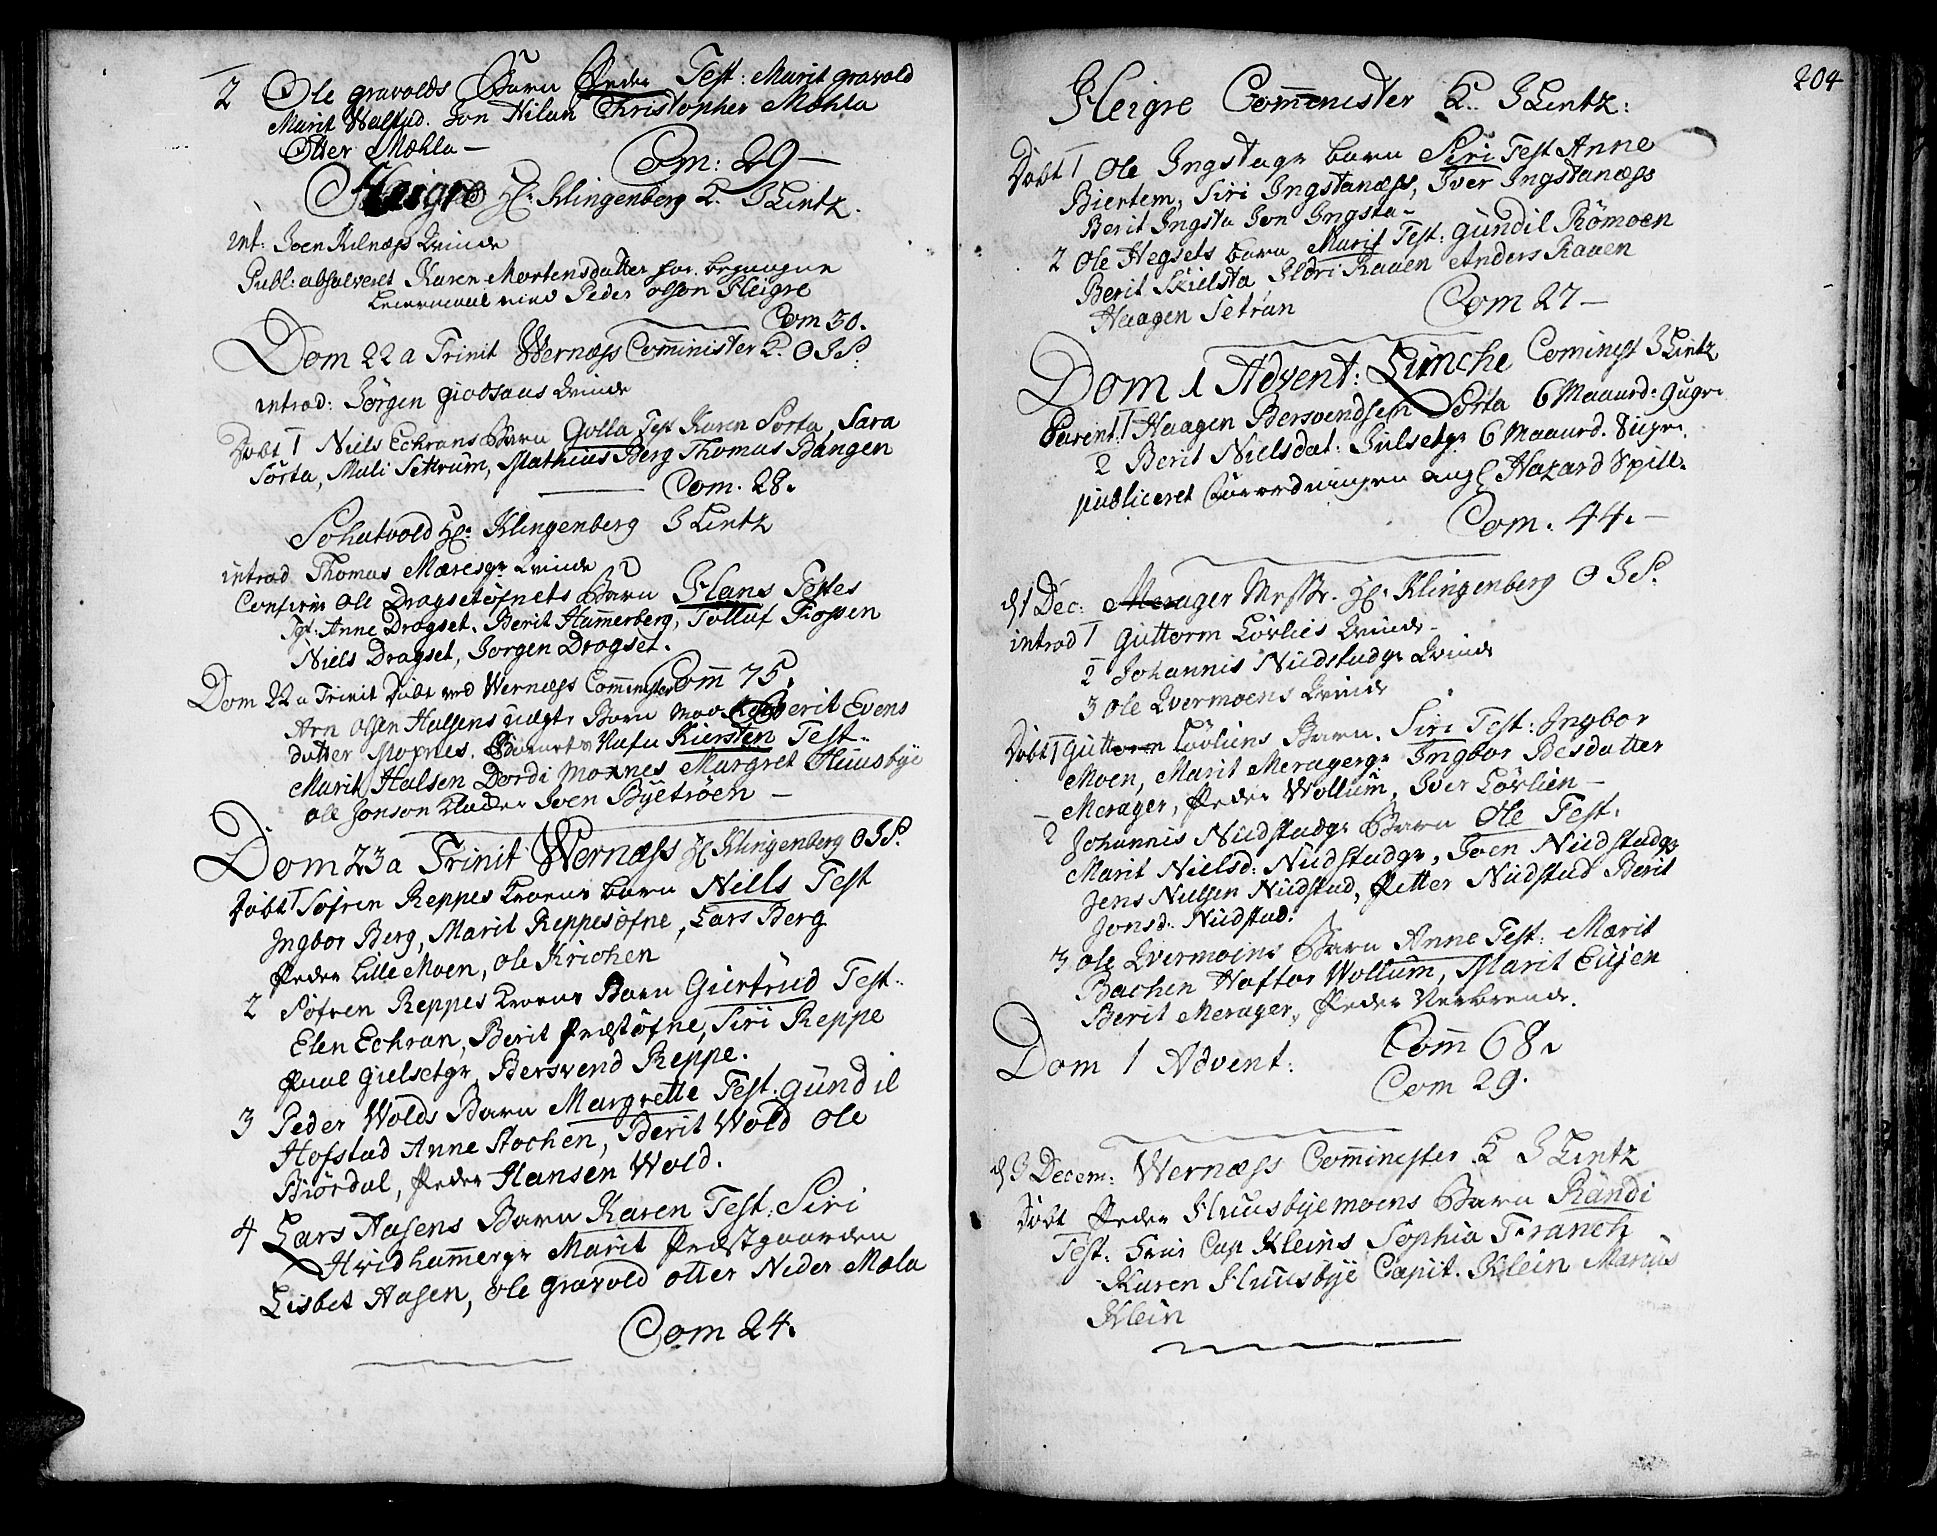 2 Ole Gravolds Barn Peder Test: Marit Gravold
Marit Walstad. Jon Hilan Christopher Mæhla
Otter Mæhla —
Com: 29 —
Heigre Hr: Klingenberg J Lintz.
int: Joen Kilnæss Qvinde
Publ: absolveret Karen Mortensdatter for begangne
Leiermaal med Peder Olson Heigre
Com 30.
Dom 22 a Trinit Wernæss Comminister O J S.
introd: Jørgen Giodsaas Qvinde
Døbt 1 Niels Echrans Barn Golla Test Karen Sorta, Sara
Sorta, Mali Setrum, Mathias Berg Thomas Bangen
Com. 28.
Schatvold Hr: Klingenberg J Lintz
introd Thomas Mæresgr Qvinde
Confirm Ole Dragsetøfnets Barn Hans Testes
Anne Dragset, Berit Hammerberg, Tolluf Flossen
Niels Dragset, Jorgen Dragset.
Com 75.
Dom 22 a Trinit Døbt ved Wernæss Comminister
Arn Olsen Halsens uægte Barn Berit Evens
datter Moxnes. Barnets Nafn Kirsten Test:
Marit Halsen Dordi Moxnes Margret Huusbye
Ole Jonson Kladder Joen Byetrøen —
Dom 23 a Trinit Wernæss Hr Klingenberg O J S.
Døbt 1 Søfren Reppes Barn Niells Test
Ingbor Berg, Marit Reppesøfne, Lars Berg
Peder Lille Moen, Ole Krichen
2 Søfren Reppes Barn Giertrud Test:
Elen Echran, Berit Præstøfne, Siri Reppe
Paul Gielsetgr, Bersvend Reppe.
3 Peder Wolds Barn Margrette Test: Gundil
Hofstad Anne Stochen, Berit Wold Ole
Biørdal, Peder Hansen Wold.
4 Lars Aasens Barn Karen Test: Siri
Hvidhammergr Marit Præstgaarden
Lisbet Aasen, Ole Gravold Otter Neder Mæla
Com 24.
204
Heigre Comminister J Lintz:
Døbt 1 Ole Ingstagr Barn Siri Test Anne
Biertem, Siri Ingstanæss, Iver Ingstanæss
Berit Ingsta Jon Ingsta —
2 Ole Hegsets Barn Marit Test: Gundil Rømoen
Berit Skielsta, Ildri Raaen Anders Raaen
Haagen Setran
Com 27 —
Dom 1 Advent: Lunche Cominest J Lintz
Parent: 1 Haagen Bersvendsen Sorta 6 Maaned: Gugr.
2 Berit Nielsdat: Gulsetgr 6 Maaned.
publiceret Forordningen ang: Hazard Spill.
Com. 44. —
d 1 Dec: Merager Messe. Hr: Klingenberg O J S.
introd 1 Guttorm Løvlies Qvinde —
2 Johannis Nudstadgr Qvinde
3 Ole Qvermoens Qvinde
Døbt 1 Guttorm Løvliens Barn. Siri Test: Ingbor
Moen, Marit Meragergr Ingbor Besdatter
Merager, Peder Wollum, Iver Løvlien —
2 Johannis Nudstadgr Barn Ole Test:
Marit Nielsd: Nudstadgr, Joen Nudstadgr
Jens Nielsen Nudstad, Petter Nudstad Berit
Jonsd: Nudstad.
3 Ole Qvermoens Barn Anne Test: Marit
Bachen Haftor Wollum, Marit Eidjen
Berit Merager, Peder Nerbrende.
Com 68.
Dom 1 Advent:
Com 29.
d 3 Decem: Wernæss Comminister J Lintz
Døbt Peder Huusbyemoens Barn Randi
Test: Frue Cap Kleins Sophia Franch
Karen Huusbye Capit. Klein Marius
Klein